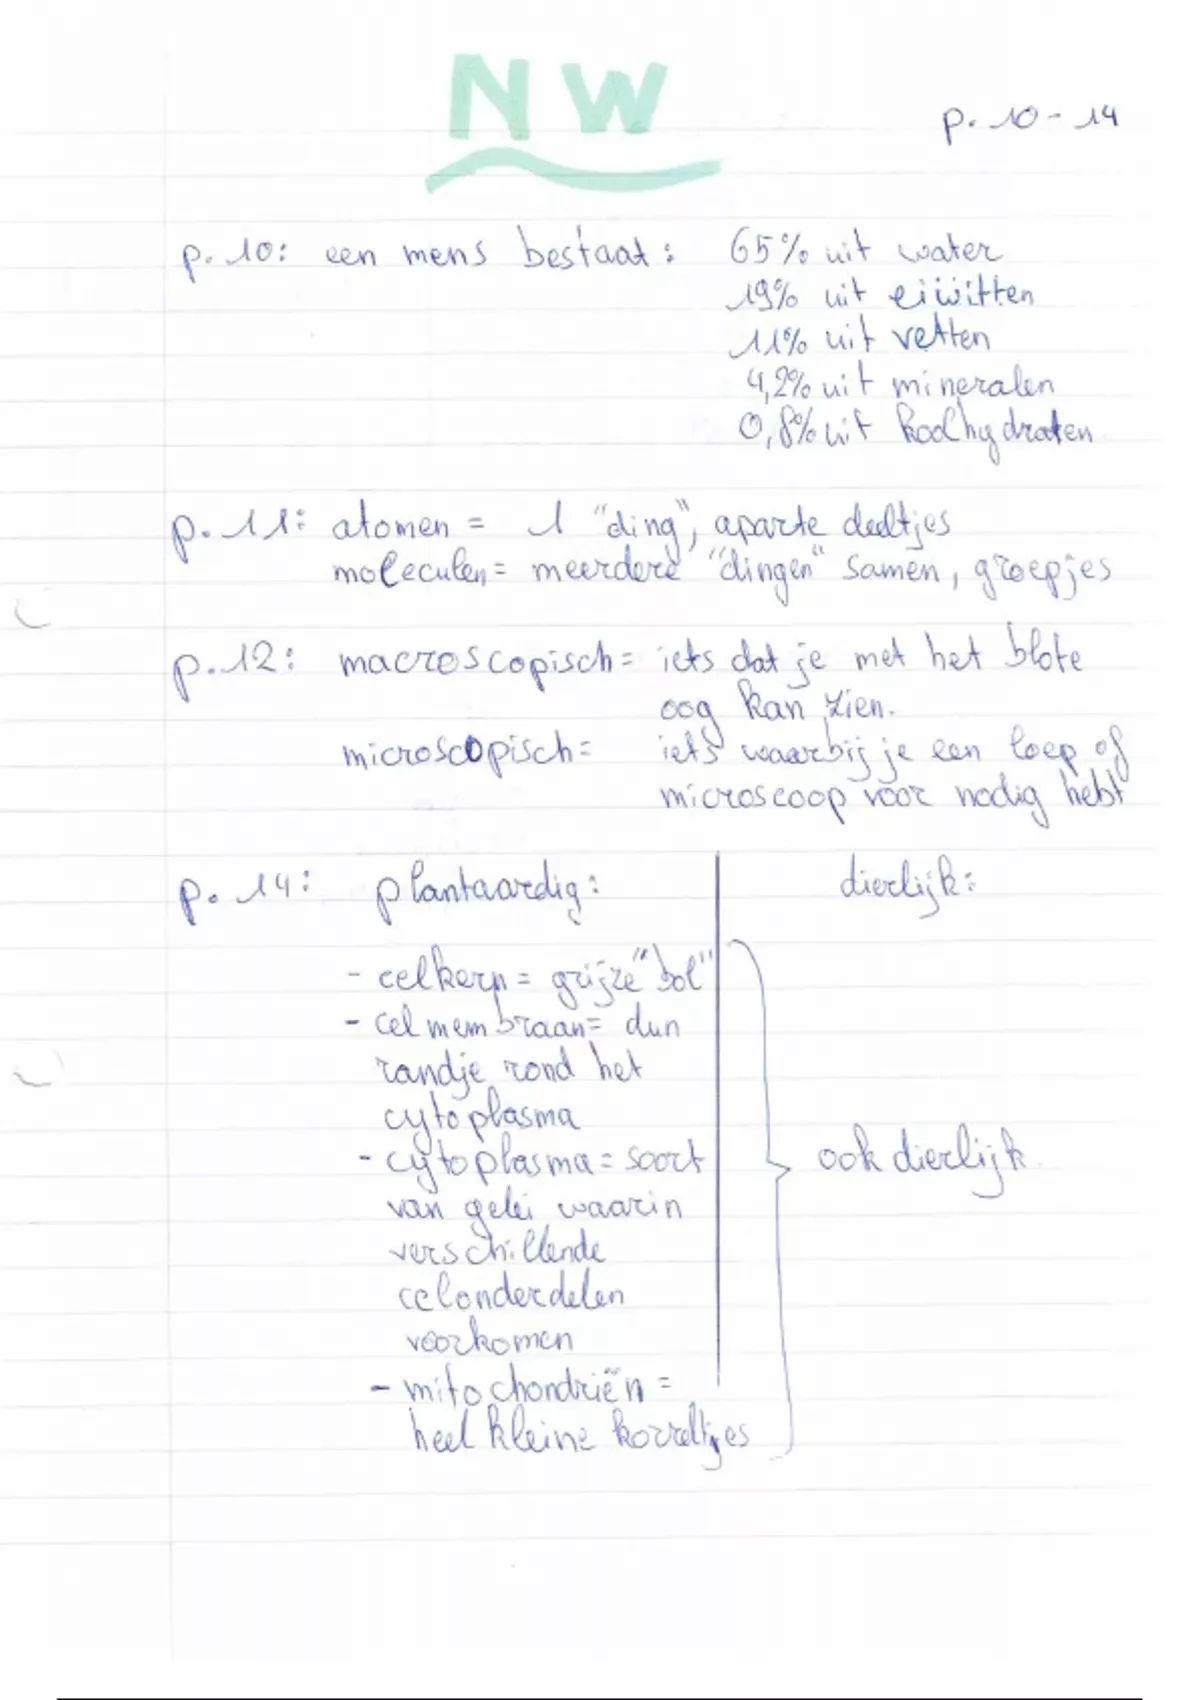 NW
p. 10 - 14
p. 10: een mens bestaat: 65% uit water
19% uit eiwitten
11% uit vetten
4,2% uit mineralen
0,8% uit koolhydraten
p. 11: atomen = 1 "ding", aparte deeltjes
moleculen = meerdere "dingen" samen, groepjes
p. 12: macroscopisch = iets dat je met het blote
oog kan zien.
microscopisch = iets waarbij je een loep of
microscoop voor nodig hebt
p. 14: plantaardig: dierlijk:
- celkern = grijze "bol"
- celmembraan = dun
randje rond het
cytoplasma
- cytoplasma = soort
van gelei waarin
verschillende
celonderdelen
voorkomen
- mitochondriën =
heel kleine korreltjes
ook dierlijk